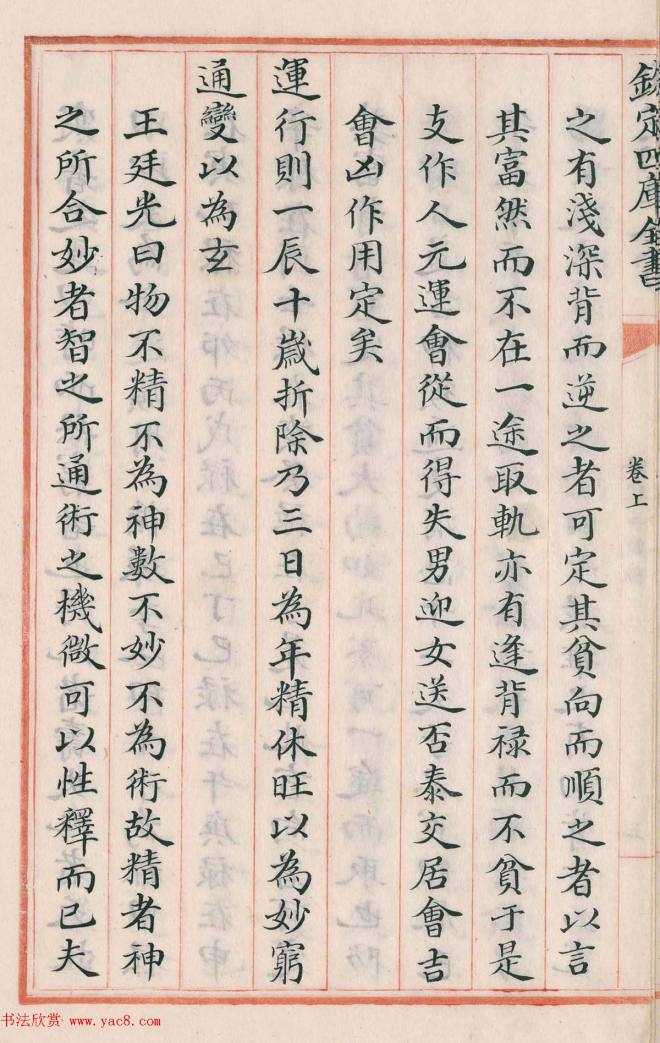 欽定四庫全書
卷上
之有淺深背而逆之者可定其貧向而順之者以言
其富然而不在一途取軌亦有逢背禄而不貧于是
支作人元運會從而得失男迎女送否泰交居會吉
會凶作用定矣
運行則一辰十歲折除乃三日為年精休旺以為妙窮
通變以為玄
王廷光曰物不精不為神數不妙不為術故精者神
之所合妙者智之所通術之機微可以性釋而已夫
书法欣赏 www.yac8.com